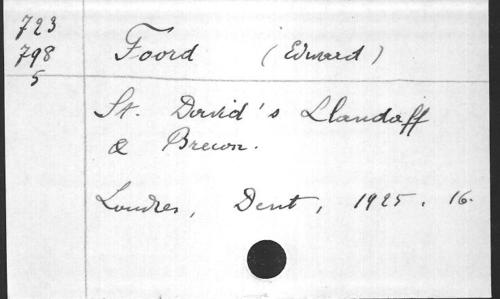 723
798
5
Foord (Edward)
St. David's Llandaff
& Brecon.
Londres, Dent, 1925. 16.